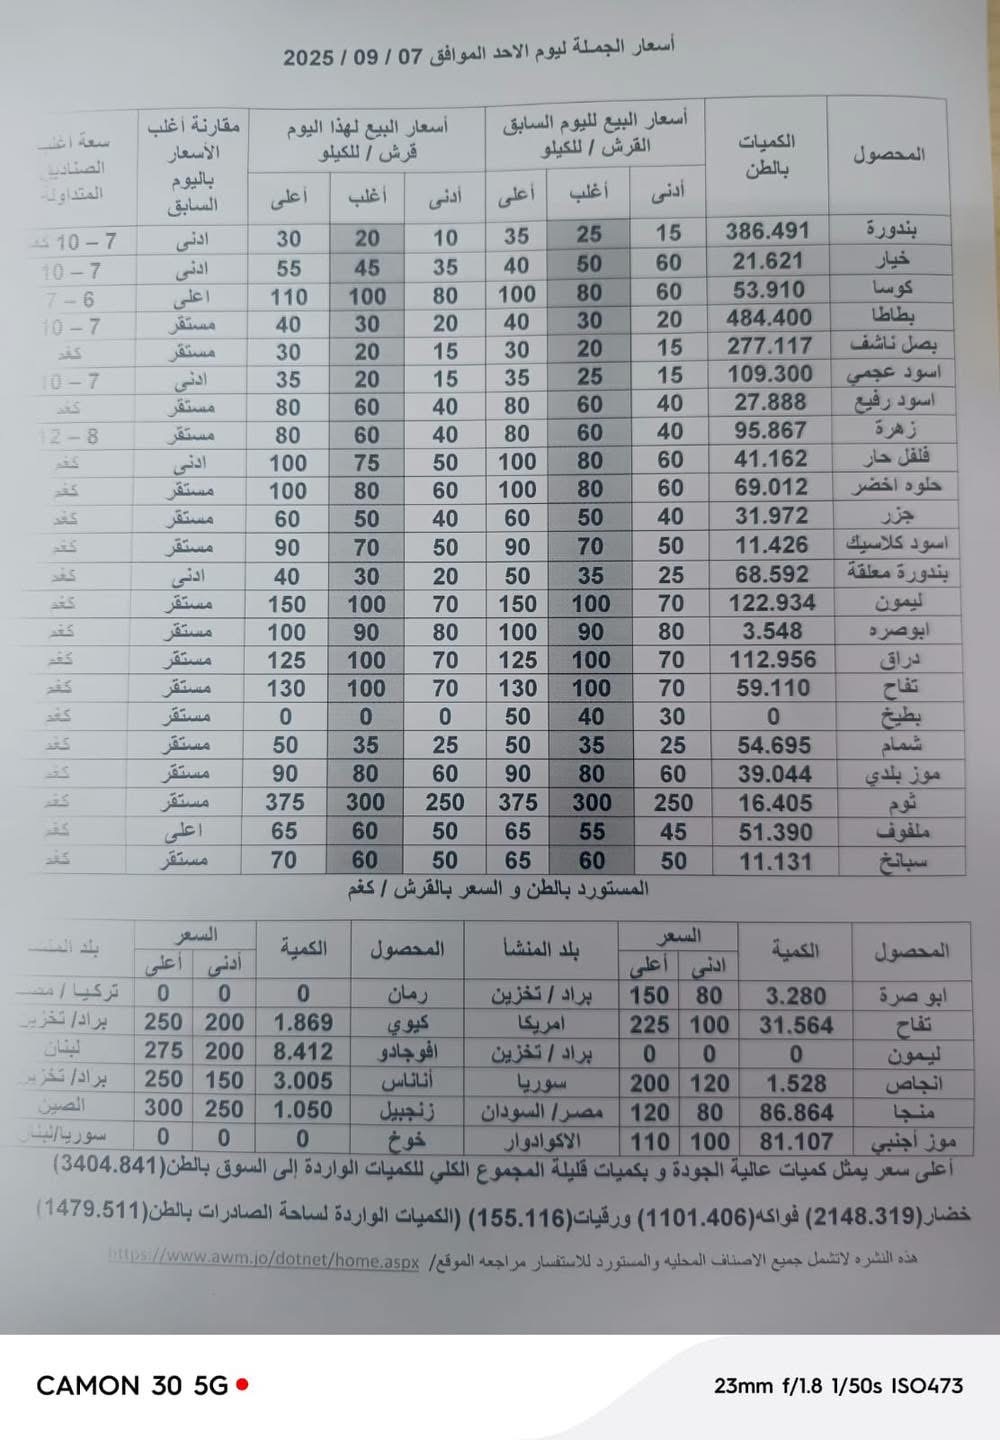 أسعار الجملة ليوم الاحد الموافق 07 / 09 / 2025
المحصول | الكميات بالطن | أسعار البيع لليوم السابق القرش / للكيلو | أسعار البيع لهذا اليوم قرش / للكيلو | مقارنة أغلب الأسعار باليوم السابق | سعة اغلب الصناديق المتداولة
أدنى | أغلب | أعلى | أدنى | أغلب | أعلى
بندورة | 386.491 | 15 | 25 | 35 | 10 | 20 | 30 | ادنى | 7 – 10
خيار | 21.621 | 60 | 50 | 40 | 35 | 45 | 55 | ادنى | 7 – 10
كوسا | 53.910 | 60 | 80 | 100 | 80 | 100 | 110 | اعلى | 6 – 7
بطاطا | 484.400 | 20 | 30 | 40 | 20 | 30 | 40 | مستقر | 7 – 10
بصل ناشف | 277.117 | 15 | 20 | 30 | 15 | 20 | 30 | مستقر | كغم
اسود عجمي | 109.300 | 15 | 25 | 35 | 15 | 20 | 35 | ادنى | 7 – 10
اسود رفيع | 27.888 | 40 | 60 | 80 | 40 | 60 | 80 | مستقر | كغم
زهرة | 95.867 | 40 | 60 | 80 | 40 | 60 | 80 | مستقر | 8 – 12
فلفل حار | 41.162 | 60 | 80 | 100 | 50 | 75 | 100 | ادنى | كغم
حلوه اخضر | 69.012 | 60 | 80 | 100 | 60 | 80 | 100 | مستقر | كغم
جزر | 31.972 | 40 | 50 | 60 | 40 | 50 | 60 | مستقر | كغم
اسود كلاسيك | 11.426 | 50 | 70 | 90 | 50 | 70 | 90 | مستقر | كغم
بندورة معلقة | 68.592 | 25 | 35 | 50 | 20 | 30 | 40 | ادنى | كغم
ليمون | 122.934 | 70 | 100 | 150 | 70 | 100 | 150 | مستقر | كغم
ابوصره | 3.548 | 80 | 90 | 100 | 80 | 90 | 100 | مستقر | كغم
دراق | 112.956 | 70 | 100 | 125 | 70 | 100 | 125 | مستقر | كغم
تفاح | 59.110 | 70 | 100 | 130 | 70 | 100 | 130 | مستقر | كغم
بطيخ | 0 | 30 | 40 | 50 | 0 | 0 | 0 | مستقر | كغم
شمام | 54.695 | 25 | 35 | 50 | 25 | 35 | 50 | مستقر | كغم
موز بلدي | 39.044 | 60 | 80 | 90 | 60 | 80 | 90 | مستقر | كغم
ثوم | 16.405 | 250 | 300 | 375 | 250 | 300 | 375 | مستقر | كغم
ملفوف | 51.390 | 45 | 55 | 65 | 50 | 60 | 65 | اعلى | كغم
سبانخ | 11.131 | 50 | 60 | 65 | 50 | 60 | 70 | مستقر | كغم
المستورد بالطن و السعر بالقرش / كغم
المحصول | الكمية | السعر | بلد المنشأ | المحصول | الكمية | السعر | بلد
ادنى | أعلى | أدنى | أعلى
ابو صرة | 3.280 | 80 | 150 | براد / تخزين | رمان | 0 | 0 | 0 | تركيا /
تفاح | 31.564 | 100 | 225 | امريكا | كيوي | 1.869 | 200 | 250 | براد/ تخزين
ليمون | 0 | 0 | 0 | براد / تخزين | افوجادو | 8.412 | 200 | 275 | لبنان
انجاص | 1.528 | 120 | 200 | سوريا | أناناس | 3.005 | 150 | 250 | براد/ تخزين
منجا | 86.864 | 80 | 120 | مصر/ السودان | زنجبيل | 1.050 | 250 | 300 | الصين
موز أجنبي | 81.107 | 100 | 110 | الاكوادوار | خوخ | 0 | 0 | 0 | سوريا/لبنان
أعلى سعر يمثل كميات عالية الجودة و بكميات قليلة المجموع الكلي للكميات الواردة إلى السوق بالطن(3404.841)
خضار(2148.319) فواكه(1101.406) ورقيات(155.116) (الكميات الواردة لساحة الصادرات بالطن(1479.511)
هذه النشره لاتشمل جميع الاصناف المحليه والمستورد للاستفسار مراجعه الموقع/ https://www.awm.jo/dotnet/home.aspx
CAMON 30 5G
23mm f/1.8 1/50s ISO473